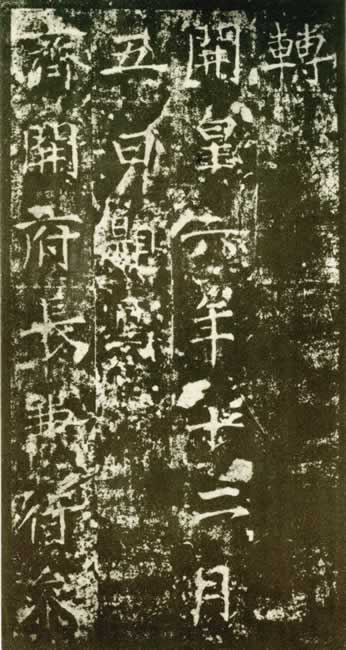 轉
開皇六年十二月
五日題寫
齊開府長兼行參